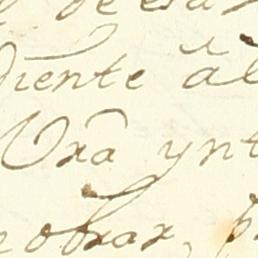 de esa
diente al
Vrã ynt
obrar,